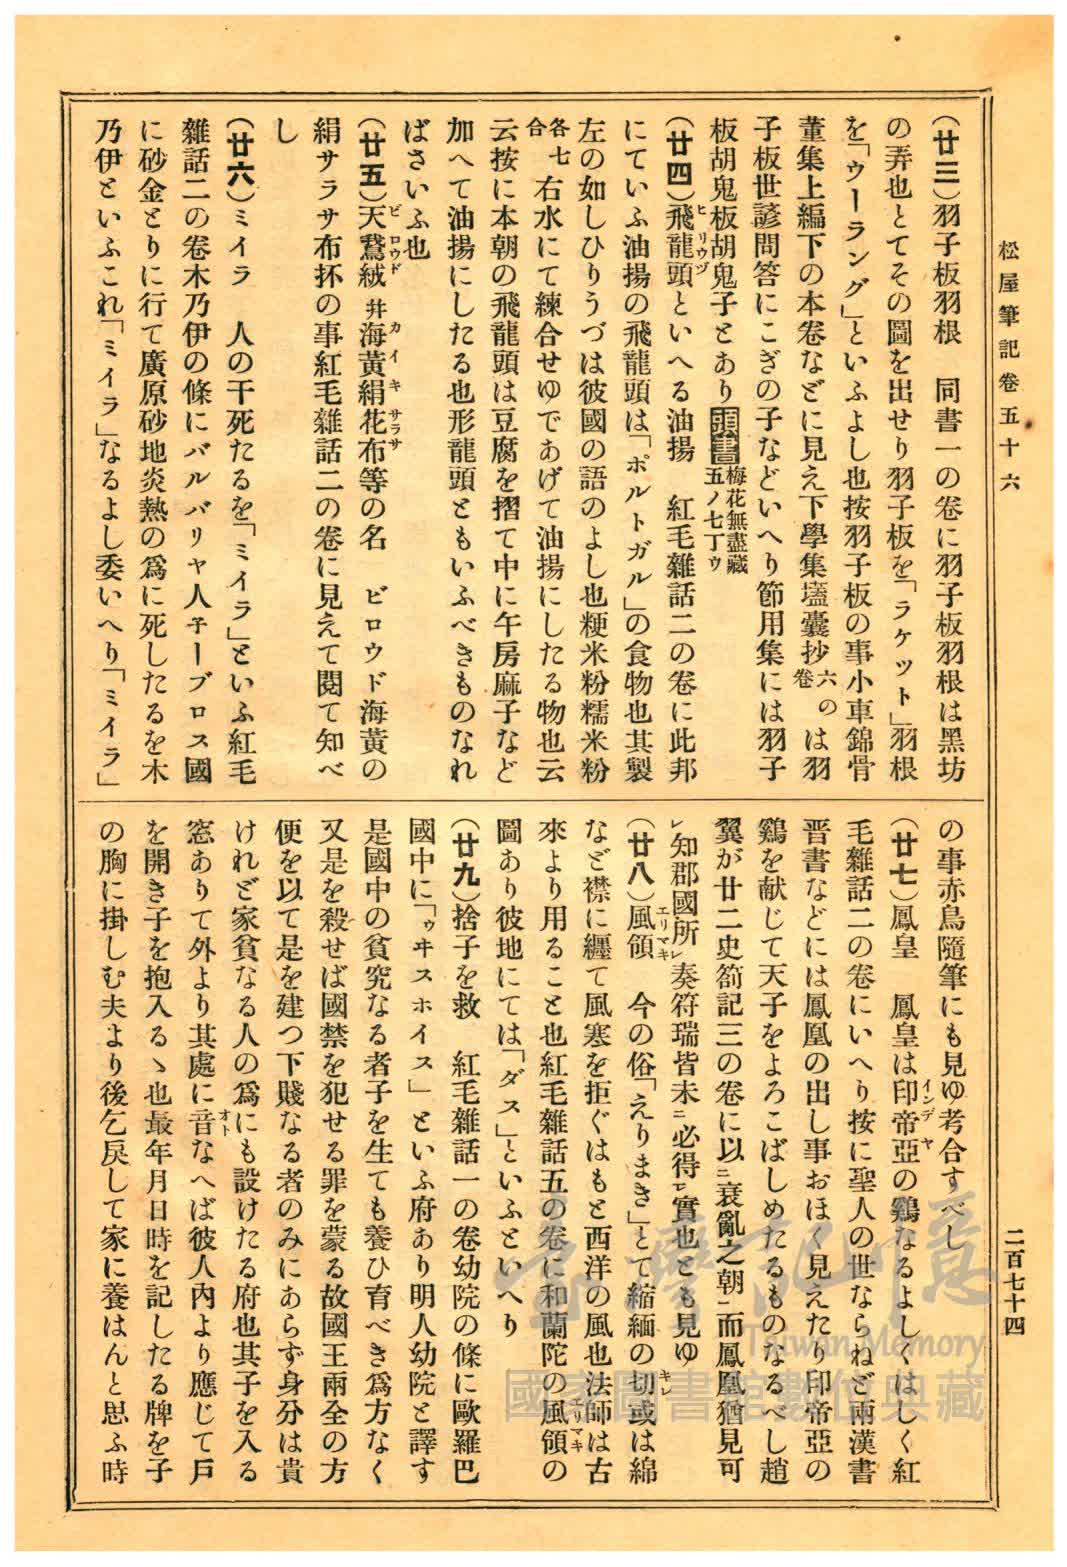 松屋筆記卷五十六
二百七十四
(廿三)羽子板羽根　同書一の卷に羽子板羽根は黑坊
の弄也とてその圖を出せり羽子板を「ラケット」羽根
を「ウーラング」といふよし也按羽子板の事小車錦骨
董集上編下の本卷などに見え下學集壒囊抄六の卷は羽
子板世諺問答にこぎの子などいへり節用集には羽子
板胡鬼板胡鬼子とあり頭書梅花無盡藏五ノ七丁ウ
(廿四)飛龍頭ヒリウヅといへる油揚　紅毛雜話二の卷に此邦
にていふ油揚の飛龍頭は「ポルトガル」の食物也其製
左の如しひりうづは彼國の語のよし也粳米粉糯米粉
各七合右水にて練合せゆであげて油揚にしたる物也云
云按に本朝の飛龍頭は豆腐を摺て中に午房麻子など
加へて油揚にしたる也形龍頭ともいふべきものなれ
ばさいふ也
(廿五)天鵞絨ビロウド幷海黃絹カイキ花布サラサ等の名　ビロウド海黃の
絹サラサ布抔の事紅毛雜話二の卷に見えて閱て知べ
し
(廿六)ミイラ　人の干死たるを「ミイラ」といふ紅毛
雜話二の卷木乃伊の條にバルバリヤ人チーブロス國
に砂金とりに行て廣原砂地炎熱の爲に死したるを木
乃伊といふこれ「ミイラ」なるよし委いへり「ミイラ」
の事赤鳥隨筆にも見ゆ考合すべし
(廿七)鳳皇　鳳皇は印帝亞インデヤの鷄なるよしくはしく紅
毛雜話二の卷にいへり按に聖人の世ならねど兩漢書
晋書などには鳳凰の出し事おほく見えたり印帝亞の
鷄を献じて天子をよろこばしめたるものなるべし趙
翼が廿二史劄記三の卷に以ニ衰亂之朝ニ而鳳凰猶見可
レ知郡國所レ奏符瑞皆未ニ必得ニ實也とも見ゆ
(廿八)風領エリマキ　今の俗「えりまき」とて縮緬の切キレ或は綿
など襟に纒て風塞を拒ぐはもと西洋の風也法師は古
來より用ること也紅毛雜話五の卷に和蘭陀の風領エリマキの
圖あり彼地にては「ダス」といふといへり
(廿九)捨子を救　紅毛雜話一の卷幼院の條に歐羅巴
國中に「ゥヰスホイス」といふ府あり明人幼院と譯す
是國中の貧究なる者子を生ても養ひ育べき爲方なく
又是を殺せば國禁を犯せる罪を蒙る故國王兩全の方
便を以て是を建つ下賤なる者のみにあらず身分は貴
けれど家貧なる人の爲にも設けたる府也其子を入る
窓ありて外より其處に音オトなへば彼人內より應じて戶
を開き子を抱入るゝ也最年月日時を記したる牌を子
の胸に掛しむ夫より後乞戾して家に養はんと思ふ時
臺灣記憶
Taiwan Memory
國家圖書館數位典藏